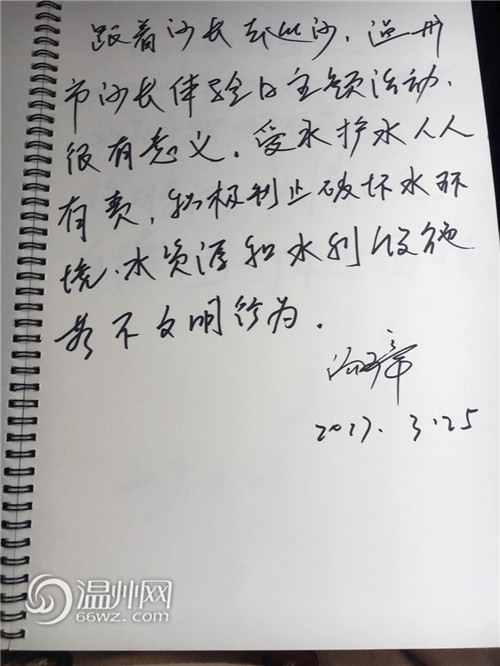 跟着河长去巡河，温州
市河长体验日主题活动，
很有意义。爱水护水人人
有责，积极制止破坏水环
境、水资源和水利设施
等不文明行为。
2017.3.25
温州网
66wz.com